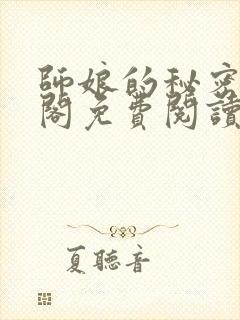 師娘的秘密
閣免費閱讀
夏聽音